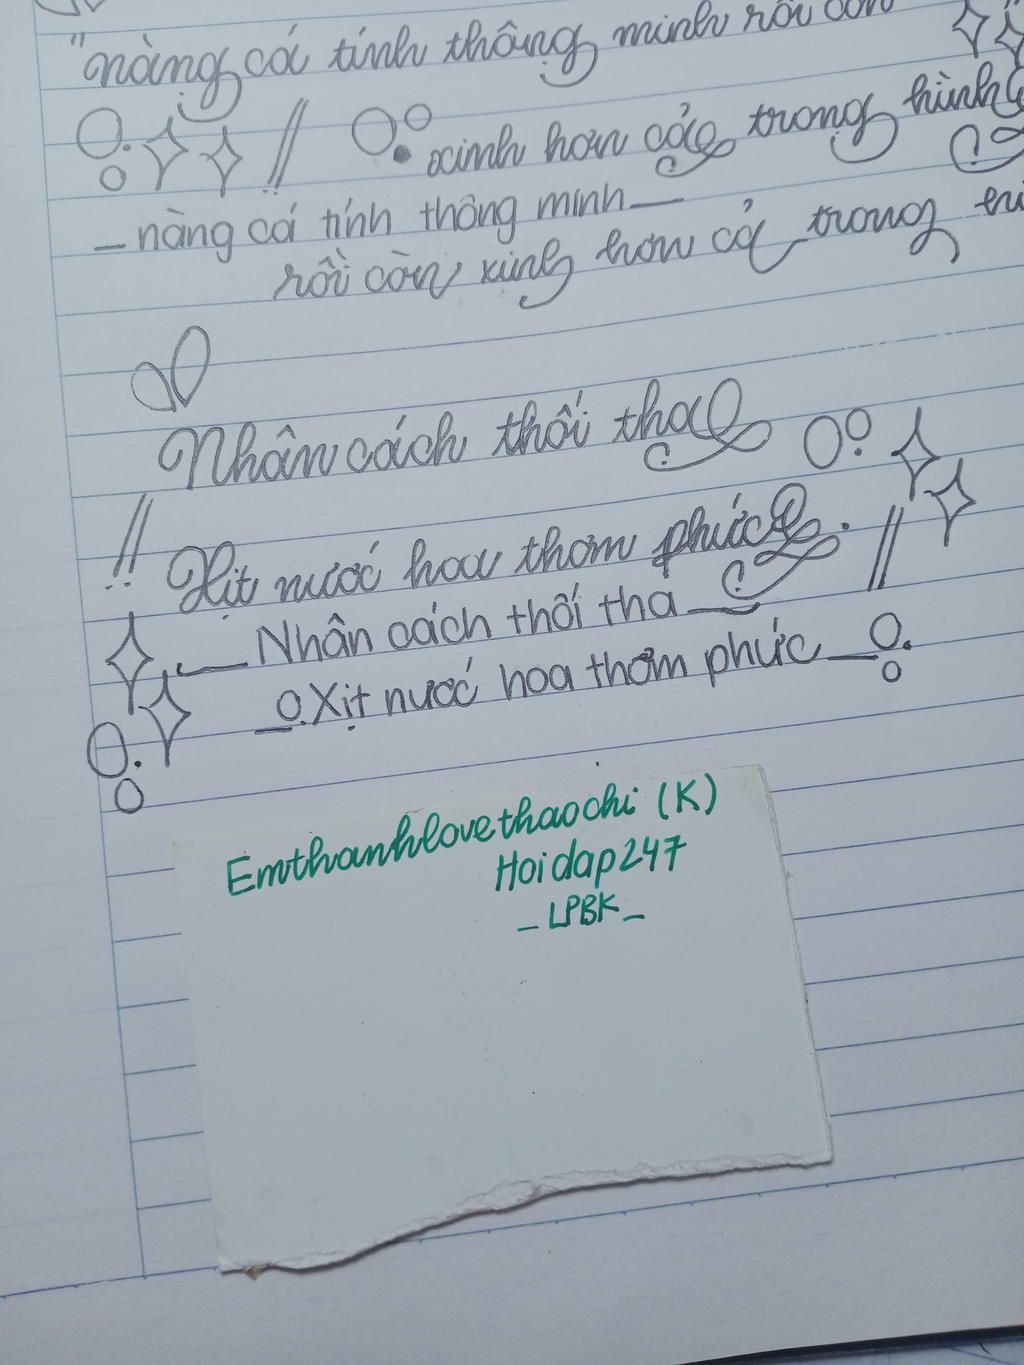 "nàng cá tính thông minh rồi còn
xinh hơn cả trong hình
_ nàng cá tính thông minh _
rồi còn xinh hơn cả trong
Nhân cách thối tha
!! Xịt nước hoa thơm phức. //
_ Nhân cách thối tha _
_ Xịt nước hoa thơm phức _
Emthanhlovethaochi (K)
Hoidap247
_ LPBK _